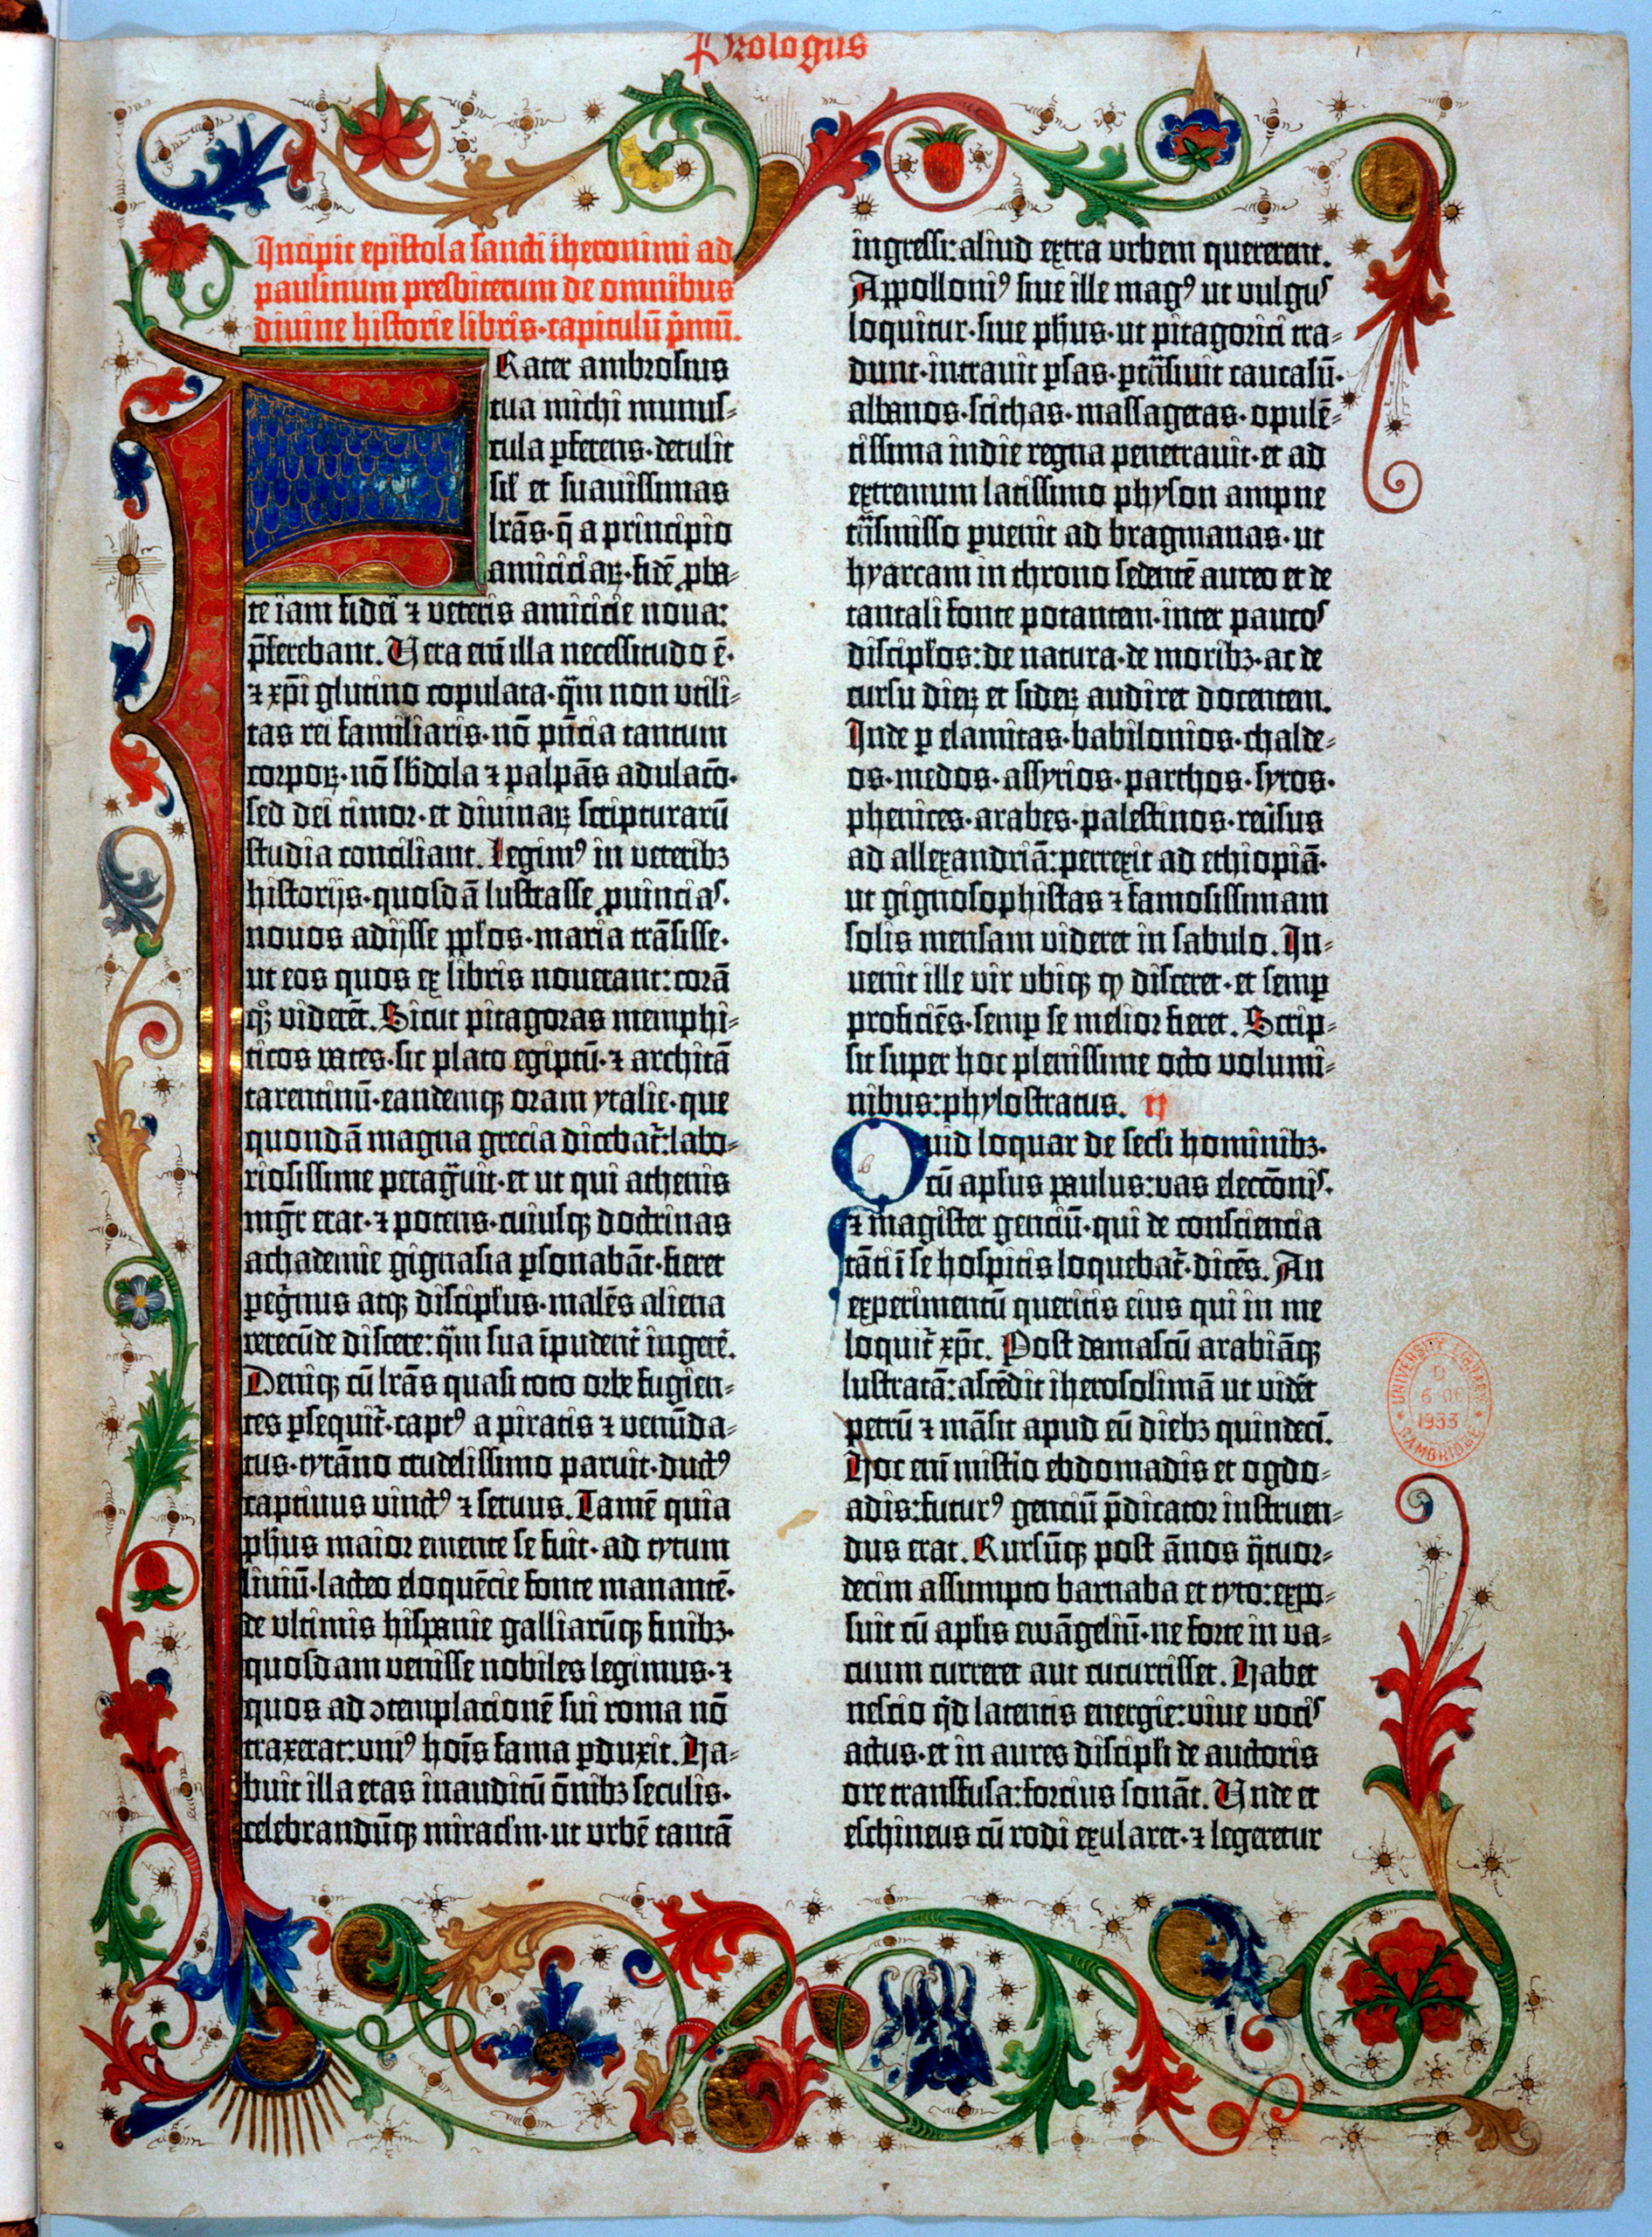 Prologus
Incipit epistola sancti iheronimi ad
paulinum presbiterum de omnibus
divine historie libris·capitulū p̄mū.
Frater ambrosius
tua michi munus-
cula ꝑferens·detulit
sił et suavissimas
lrās·q̄ a principio
amiciciaꝝ·fidē ꝓba-
te iam fidei ⁊ veteris amicicie nova:
p̄ferebant. Vera eni̅ illa necessitudo ē·
⁊ xp̄i glutino copulata·q̄m non utili-
tas rei familiaris·nō pn̄cia tantum
corpoꝝ·nō sb̄dola ⁊ palpās adulaco̅·
sed dei timor·et divinaꝝ scripturarū
studia conciliant. Legimꝰ in veteribꝫ
historijs·quosdā lustrasse ꝓvincias·
novos adijsse pp̄los·maria trāsisse·
ut eos quos ex libris noverant: corā
qꝫ viderēt. Sicut pitagoras memphi-
ticos vates·sic plato egiptū·⁊ architā
tarentinū·eandemqꝫ oram ytalie·que
quondā magna grecia dicebat̄: labo-
riosissime peragͣvit·et ut qui athenis
mgr̄ erat·⁊ potens·cuiusqꝫ doctrinas
achademie gignasia ꝑsonabāt·fieret
ꝑegͥnus atqꝫ discipłus·malēs aliena
verecūde discere: qͣm sua īpudent̄ ingerē.
Deniqꝫ cū lrās quasi toto orbe fugien-
tes ꝑsequit̄·captꝰ a piratis ⁊ venūda-
tus·tyrāno crudelissimo paruit·ductꝰ
captivus vinctꝰ ⁊ servus. Tamē quia
ph̄us maior emente se fuit·ad tytum
livium·lacteo eloquēcie fonte manantē·
de ultimis hispanie galliarūqꝫ finibꝫ·
quosdam venisse nobiles legimus·⁊
quos ad ↄtemplacionē sui roma nō
traxerat: uniꝰ hoīs fama ꝑduxit. Ha-
buit illa etas inauditū ōnibꝫ seculis·
celebrandūqꝫ miraclm·ut urbē tantā
ingressi: aliud extra urbem quererent.
Appolloniꝰ sive ille magꝰ ut vulgus
loquitur·sive ph̄us·ut pitagorici tra-
dunt·intravit ꝑsas·ꝑtͣnsivit caucasū·
albanos·scithas·massagetas·opulē-
tissima indie regna penetravit·et ad
extremum latissimo physon ampne
tͣnsmisso ꝑvenit ad bragmanas·ut
hyarcam in throno sedentē aureo et de
tantali fonte potantem·inter paucos
discipłos: de natura·de moribꝫ·ac de
cursu dieꝝ et sideꝝ audiret docentem.
Inde ꝑ elamitas·babilonios·chalde-
os·medos·assyrios·parthos·syros·
phenices·arabes·palestinos·revͤsus
ad allexandriā: perrexit ad ethiopiā·
ut gignosophistas ⁊ famosissimam
solis mensam videret in sabulo. In-
venit ille vir ubiqꝫ qͦ disceret·et semꝑ
proficiēs·semꝑ se melior fieret. Scrip-
sit super hoc plenissime octo volumi-
nibus: phylostratus. II
Quid loquar de secłi hominibꝫ·
cū apłus paulus: vas electōnis·
⁊ magister genciū·qui de consciencia
tāti ī se hospitis loquebat̄·dicēs. An
experimentū queritis eius qui in me
loquit̄ xp̄c. Post damascū arabiāqꝫ
lustratā: ascēdit iherosolimā ut vidēt
petrū ⁊ māsit apud eū diebꝫ quindecī.
Hoc eni̅ mistio ebdomadis et ogdo-
adis: futurꝰ genciū p̄dicator instruen-
dus erat. Rursūqꝫ post ānos qͣtuor-
decim assumpto barnaba et tyto: expo-
suit cū apłis ewāgeliū·ne forte in va-
cuum curreret aut cucurrisset. Habet
nescio qͥd latentis energie: vive vocis
actus·et in aures discipłi de auctoris
ore transfusa: forcius sonāt. Unde et
eschineus cū rodi exularet·⁊ legeretur
UNIVERSITY LIBRARY
D
6 OC
1933
CAMBRIDGE